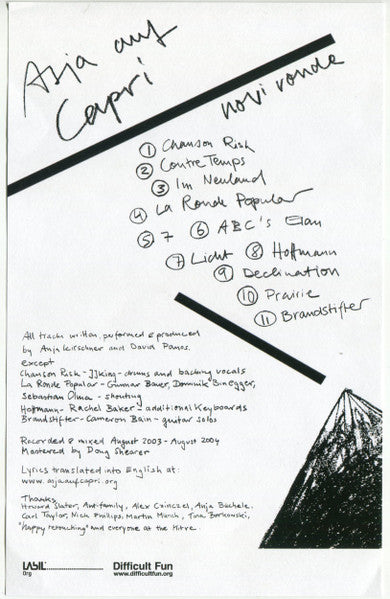 Asja auf
Capri
novi ronde
① Chanson Risk
② Contre Temps
③ Im Neuland
④ La Ronde Popular
⑤ 7 ⑥ ABC's Elan
⑦ Licht ⑧ Hoffmann
⑨ Declination
⑩ Prairie
⑪ Brandstifter
All tracks written, performed & produced
by Anja Kirschner and David Panos.
except
Chanson Risk - JJKing - drums and backing vocals
La Ronde Popular - Gunnar Bauer, Dominik Sinegger,
Sebastian Olma - shouting
Hoffmann - Rachel Baker - additional Keyboards
Brandstifter - Cameron Bain - guitar solos
Recorded & mixed August 2003 - August 2004
Mastered by Doug Shearer
Lyrics translated into English at:
www.asjaaufcapri.org
Thanks
Howard Slater, Antifamily, Alex Anja Büchele,
Carl Taylor, Nick Phillips, Martin Münch, Tina Borkowski,
"happy retouching" and everyone at the Mitre.
LASIL
Org
Difficult Fun
www.difficultfun.org